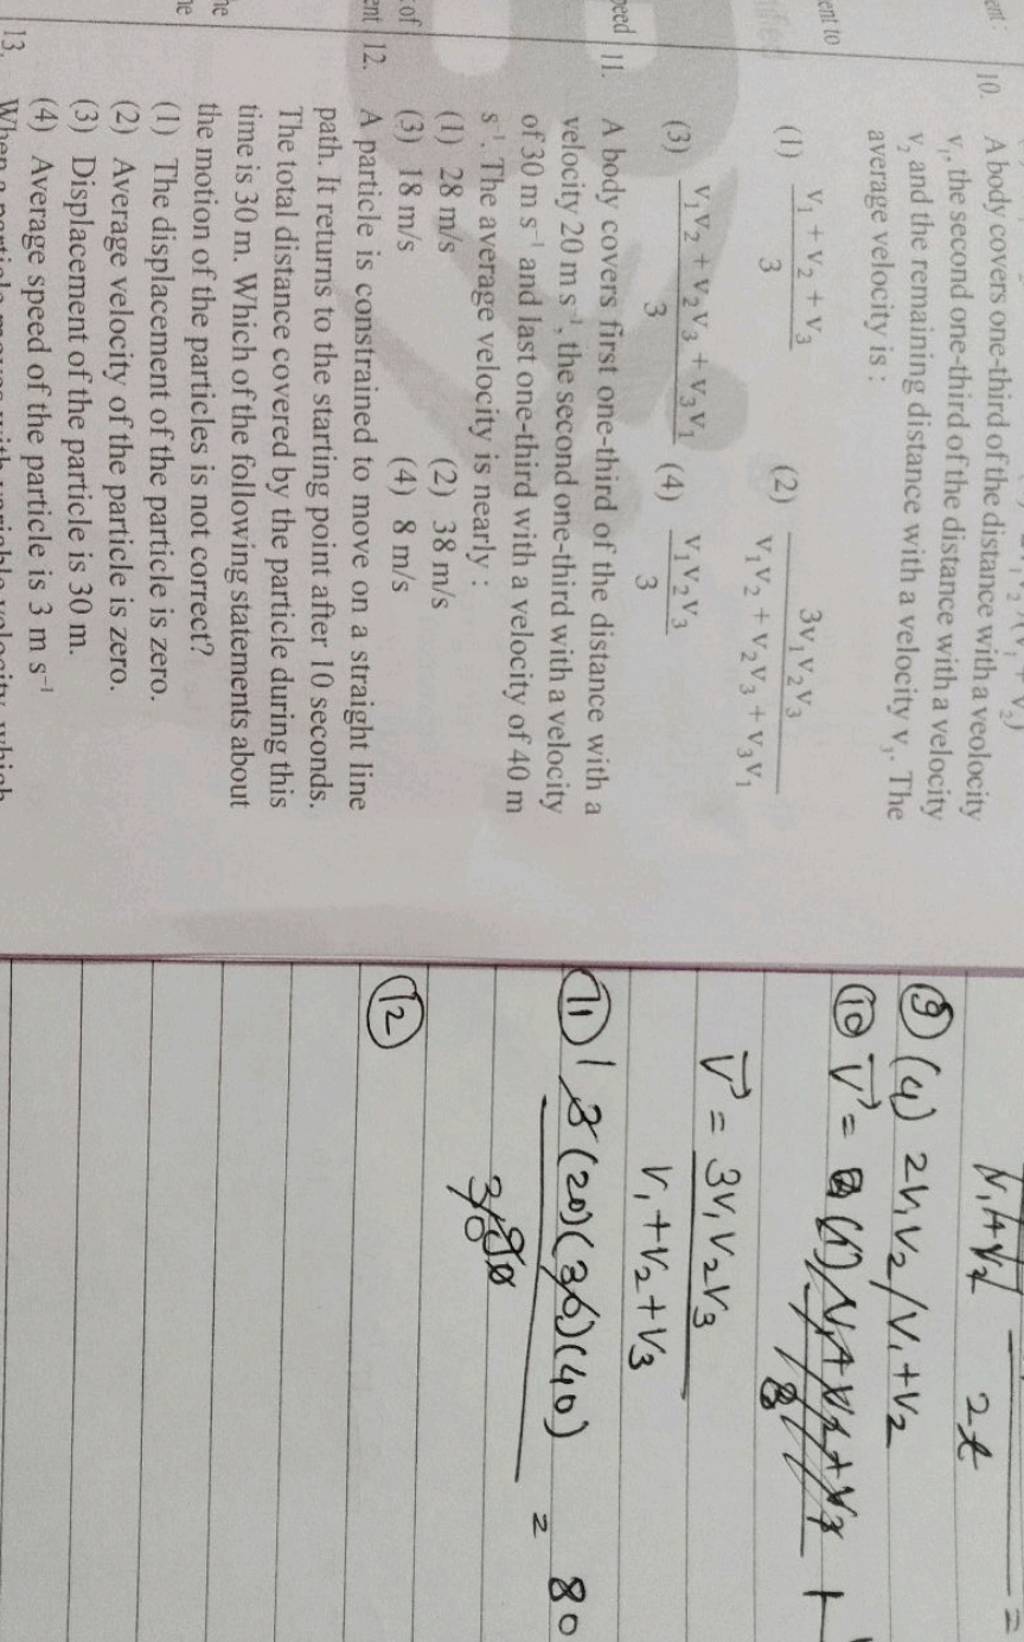 10. A body covers one-third of the distance with a veolocity
v₁, the second one-third of the distance with a velocity
v₂ and the remaining distance with a velocity v₃. The
average velocity is :
(1) (v₁ + v₂ + v₃)/3 (2) 3v₁v₂v₃/(v₁v₂ + v₂v₃ + v₃v₁)
(3) (v₁v₂ + v₂v₃ + v₃v₁)/3 (4) v₁v₂v₃/3
11. A body covers first one-third of the distance with a
velocity 20 m s⁻¹, the second one-third with a velocity
of 30 m s⁻¹ and last one-third with a velocity of 40 m
s⁻¹. The average velocity is nearly :
(1) 28 m/s (2) 38 m/s
(3) 18 m/s (4) 8 m/s
12. A particle is constrained to move on a straight line
path. It returns to the starting point after 10 seconds.
The total distance covered by the particle during this
time is 30 m. Which of the following statements about
the motion of the particles is not correct?
(1) The displacement of the particle is zero.
(2) Average velocity of the particle is zero.
(3) Displacement of the particle is 30 m.
(4) Average speed of the particle is 3 m s⁻¹
13.
2t =
⑨ (4) 2v₁v₂/v₁+v₂
⑩ V⃗ =
V⃗ = 3v₁v₂v₃
v₁+v₂+v₃
⑪ 3(20)(30)(40) = 80
⑫